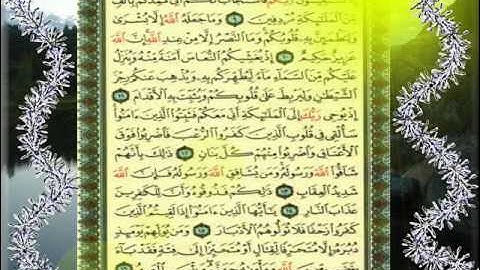 رَبَّكُمْ فَٱسْتَجَابَ لَكُمْ أَنِّي مُمِدُّكُم بِأَلْفٍ
مِّنَ ٱلْمَلَٰٓئِكَةِ مُرْدِفِينَ ٩ وَمَا جَعَلَهُ ٱللَّهُ إِلَّا بُشْرَىٰ
وَلِتَطْمَئِنَّ بِهِۦ قُلُوبُكُمْ وَمَا ٱلنَّصْرُ إِلَّا مِنْ عِندِ ٱللَّهِ إِنَّ ٱللَّهَ
عَزِيزٌ حَكِيمٌ ١٠ إِذْ يُغَشِّيكُمُ ٱلنُّعَاسَ أَمَنَةً مِّنْهُ وَيُنَزِّلُ
عَلَيْكُم مِّنَ ٱلسَّمَآءِ مَآءً لِّيُطَهِّرَكُم بِهِۦ وَيُذْهِبَ عَنكُمْ رِجْزَ
ٱلشَّيْطَٰنِ وَلِيَرْبِطَ عَلَىٰ قُلُوبِكُمْ وَيُثَبِّتَ بِهِ ٱلْأَقْدَامَ ١١
إِذْ يُوحِي رَبُّكَ إِلَى ٱلْمَلَٰٓئِكَةِ أَنِّي مَعَكُمْ فَثَبِّتُوا۟ ٱلَّذِينَ ءَامَنُوا۟
سَأُلْقِي فِي قُلُوبِ ٱلَّذِينَ كَفَرُوا۟ ٱلرُّعْبَ فَٱضْرِبُوا۟ فَوْقَ
ٱلْأَعْنَاقِ وَٱضْرِبُوا۟ مِنْهُمْ كُلَّ بَنَانٍ ١٢ ذَٰلِكَ بِأَنَّهُمْ
شَآقُّوا۟ ٱللَّهَ وَرَسُولَهُۥ وَمَن يُشَاقِقِ ٱللَّهَ وَرَسُولَهُۥ فَإِنَّ ٱللَّهَ
شَدِيدُ ٱلْعِقَابِ ١٣ ذَٰلِكُمْ فَذُوقُوهُ وَأَنَّ لِلْكَٰفِرِينَ
عَذَابَ ٱلنَّارِ ١٤ يَٰٓأَيُّهَا ٱلَّذِينَ ءَامَنُوٓا۟ إِذَا لَقِيتُمُ ٱلَّذِينَ
كَفَرُوا۟ زَحْفًا فَلَا تُوَلُّوهُمُ ٱلْأَدْبَارَ ١٥ وَمَن يُوَلِّهِمْ يَوْمَئِذٍ
دُبُرَهُۥٓ إِلَّا مُتَحَرِّفًا لِّقِتَالٍ أَوْ مُتَحَيِّزًا إِلَىٰ فِئَةٍ فَقَدْ بَآءَ
ٱللَّهِ وَمَأْوَىٰهُ جَهَنَّمُ وَبِئْسَ ٱلْمَصِيرُ